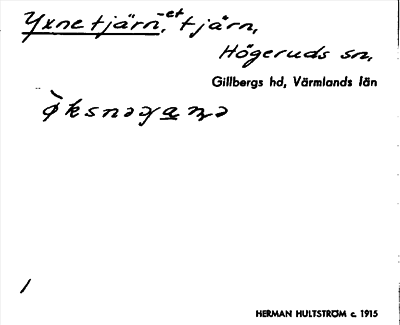 Yxnetjärn, -et tjärn,
Högeruds sn,
Gillbergs hd, Värmlands län
/
HERMAN HULTSTRÖM c. 1915